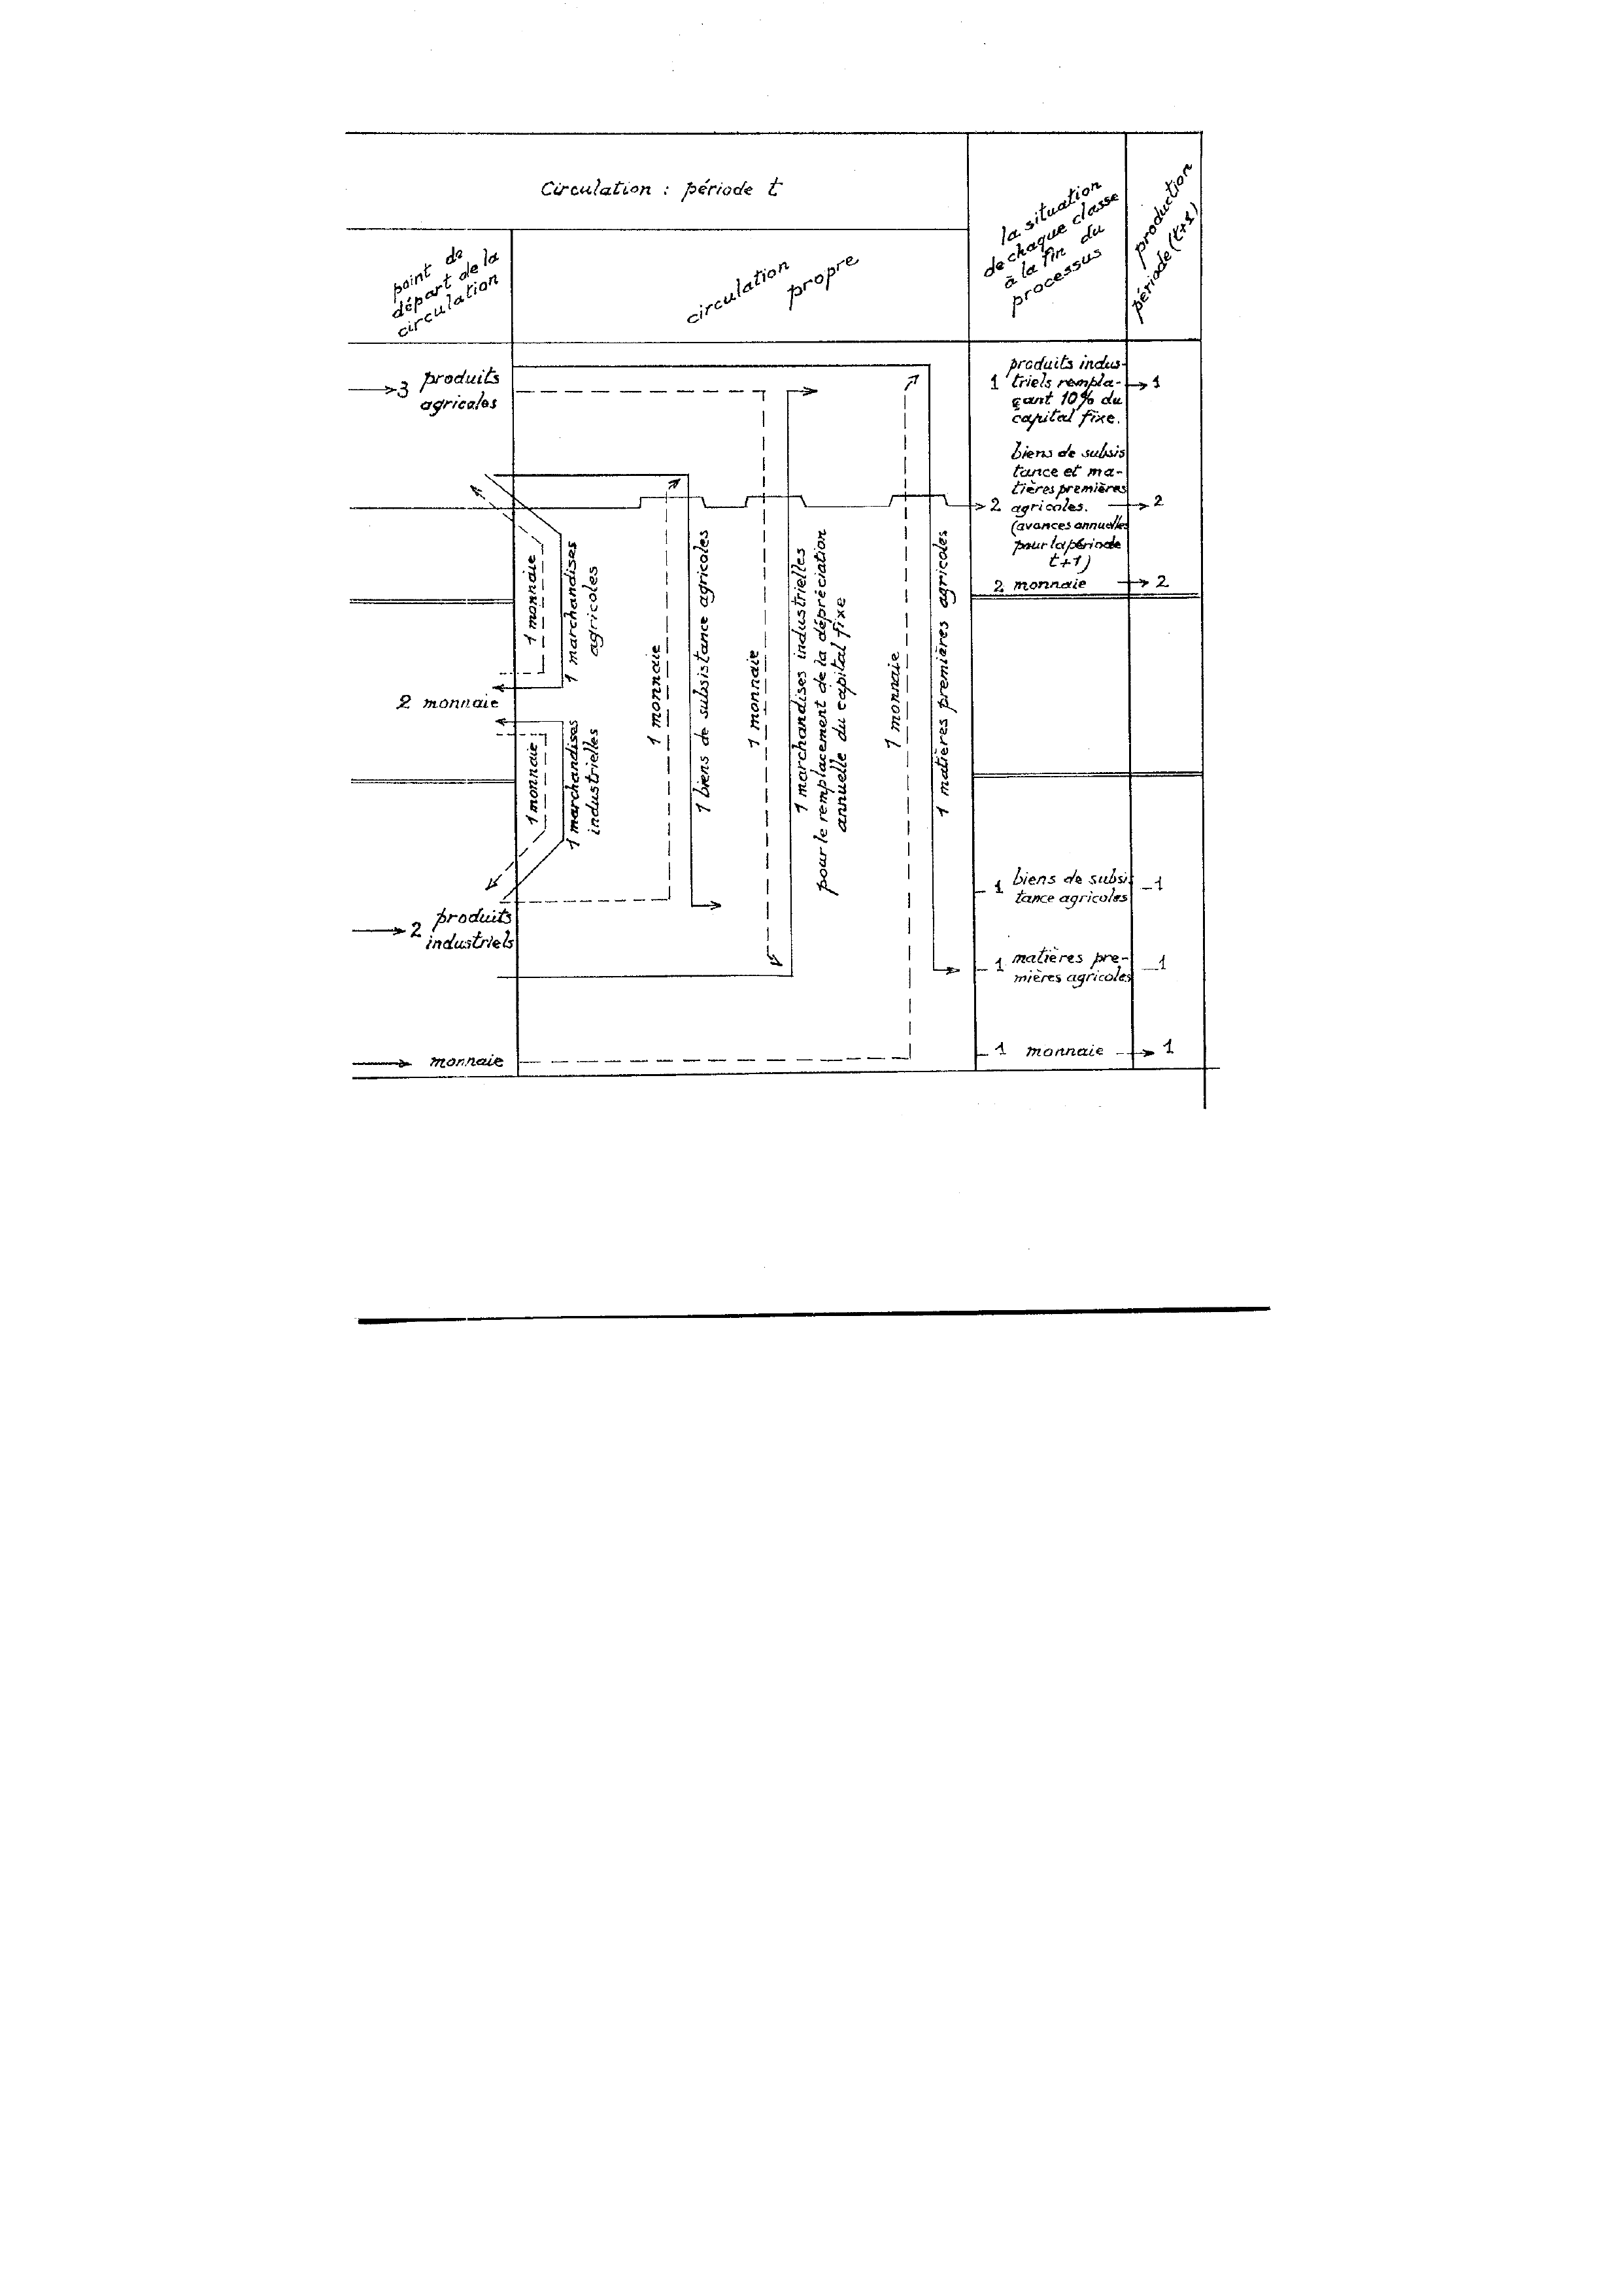 Circulation : période t
point de
départ de la
circulation
circulation
propre
la situation
de chaque classe
à la fin du
processus
production
période (t+1)
3 produits
agricoles
1 monnaie
1 marchandises
agricoles
2 monnaie
1 monnaie
1 marchandises
industrielles
2 produits
industriels
monnaie
1 monnaie
1 biens de subsistance agricoles
1 monnaie
1 marchandises industrielles
pour le remplacement de la dépréciation
annuelle du capital fixe
1 monnaie
1 matières premières agricoles
produits indus-
1 triels rempla- 1
çant 10% du
capital fixe.
biens de subsis
tance et ma-
tières premières
2 agricoles. 2
(avances annuelles
pour la période
t+1)
2 monnaie 2
1 biens de subsis 1
tance agricoles
1 matières pre- 1
mières agricoles
1 monnaie 1